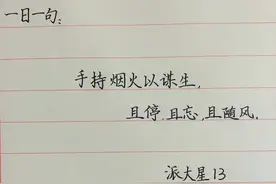 一日一句：
手持烟火以谋生，
且停，且忘，且随风。
派大星13